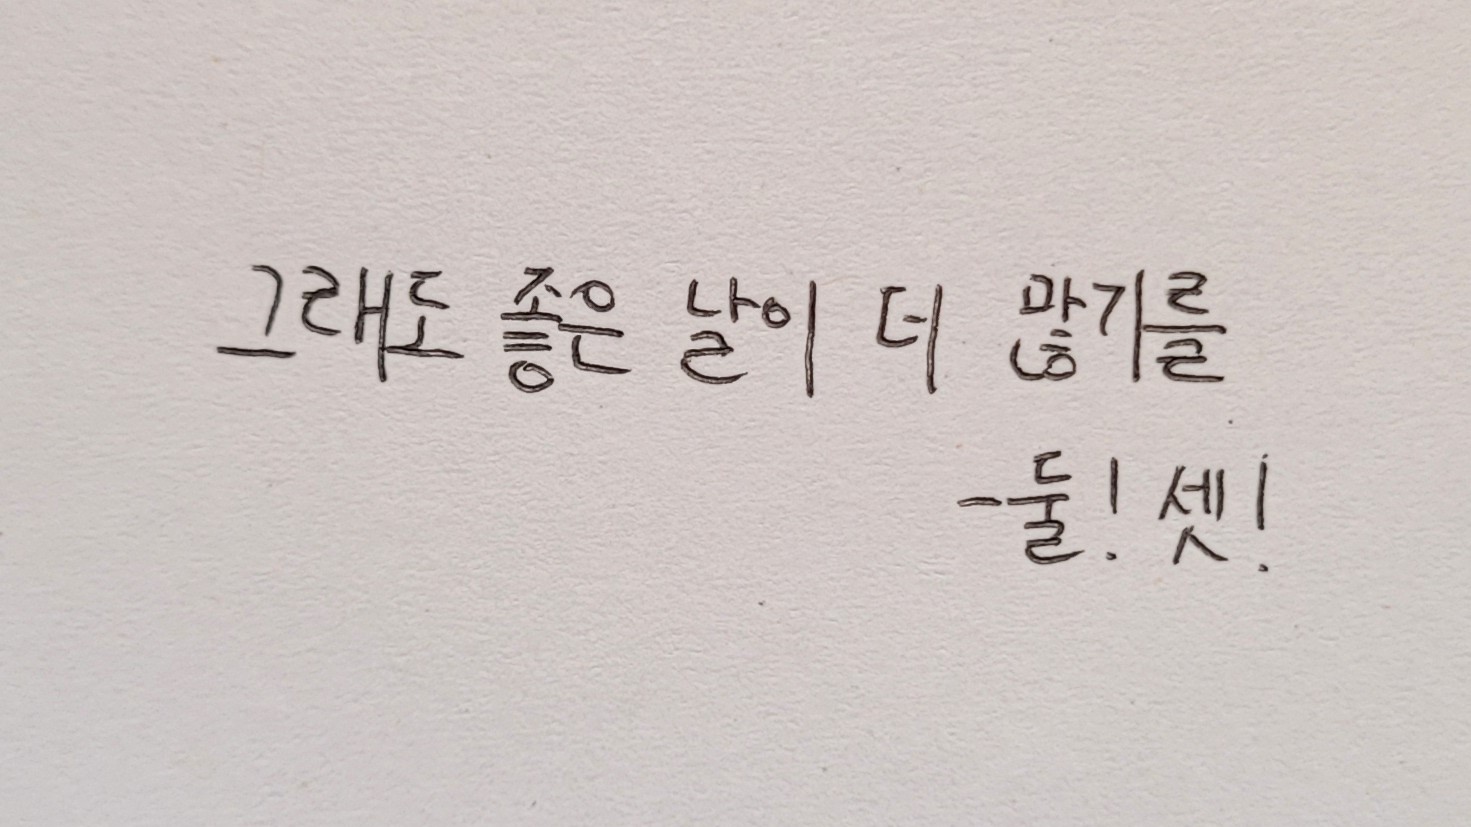 그래도 좋은 날이 더 많기를
-둘! 셋!